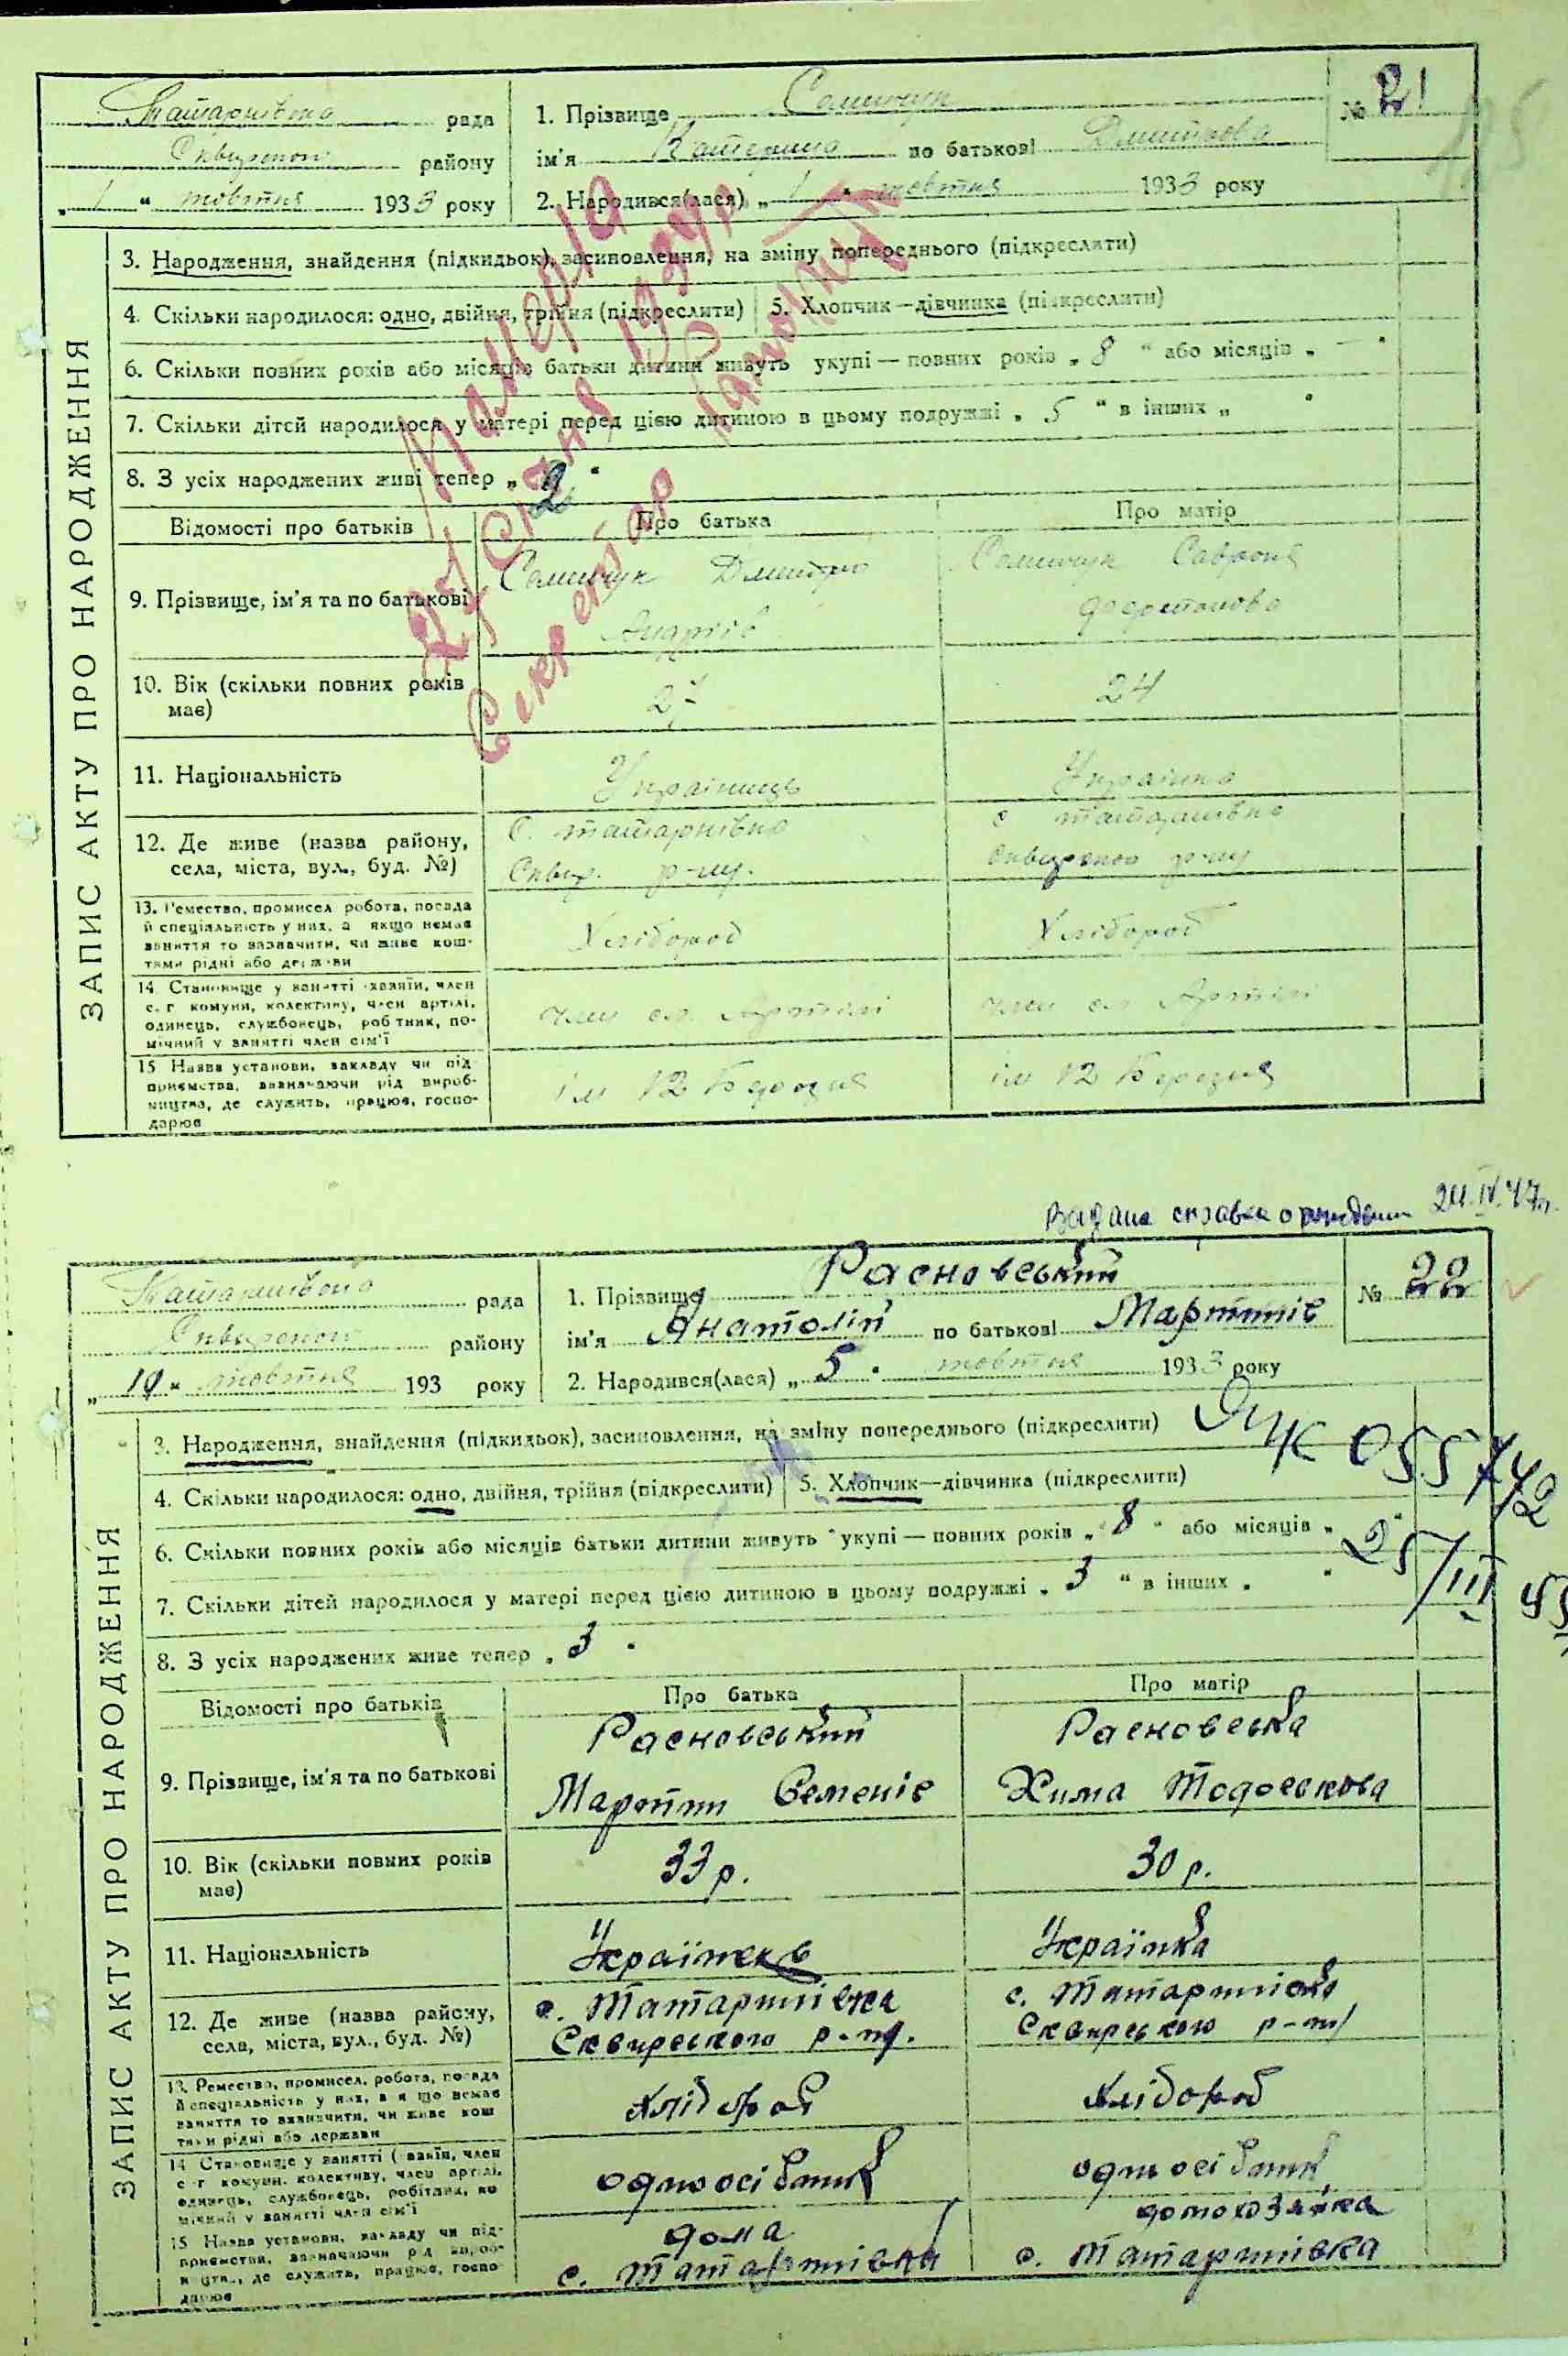 Татарнівка рада
Сквирського району
„ 1 “ жовтня 1933 року
1. Прізвище
ім'я Катерина по батькові Дмитрова
№ 21
2. Народився(лася) „ 1 “ жовтня 1933 року
ЗАПИС АКТУ ПРО НАРОДЖЕННЯ
3. Народження, знайдення (підкидьок), засиновлення, на зміну попереднього (підкреслити)
4. Скільки народилося: одно, двійня, трійня (підкреслити)
5. Хлопчик—дівчинка (підкреслити)
6. Скільки повних років або місяців батьки дитини живуть укупі — повних років „ 8 “ або місяців „ — “
7. Скільки дітей народилося у матері перед цією дитиною в цьому подружжі „ 5 “ в інших „ “
8. З усіх народжених живі тепер „ 2 “
Відомості про батьків
Про батька
Про матір
9. Прізвище, ім'я та по батькові
Дмитро
10. Вік (скільки повних років має)
27
24
11. Національність
Українець
Українка
12. Де живе (назва району, села, міста, вул., буд. №)
с. Татарнівка
Сквир. р-ну.
с Татарнівка
Сквирского р-ну
13. Ремество, промисел робота, посада й спеціальність у них, а якщо немає заняття то зазначити, чи живе коштами рідні або держави
Хлібороб
Хлібороб
14. Становище у занятті хазяїн, член с. г комуни, колективу, член артілі, одинець, службовець, робітник, помічний у занятті член сім'ї
член с.г. Артілі
член с.г. Артілі
15 Назва установи, закладу чи підприємства, зазначаючи рід виробництва, де служить, працює, господарює
ім 12 Березня
ім 12 Березня
Умерла
25/Січня 1934р
Секретар
Видана справка о рождении 24.IV.47г.
Татарнівка рада
Сквирського району
„ 10 “ жовтня 193 року
1. Прізвище Расновський
ім'я Анатолій по батькові Мартинів
№ 22
2. Народився(лася) „ 5 “ жовтня 1933 року
ЗАПИС АКТУ ПРО НАРОДЖЕННЯ
3. Народження, знайдення (підкидьок), засиновлення, на зміну попереднього (підкреслити)
055742
4. Скільки народилося: одно, двійня, трійня (підкреслити)
5. Хлопчик—дівчинка (підкреслити)
6. Скільки повних років або місяців батьки дитини живуть укупі — повних років „ 8 “ або місяців „ “
25/III 55
7. Скільки дітей народилося у матері перед цією дитиною в цьому подружжі „ 3 “ в інших „ “
8. З усіх народжених живе тепер „ 3 “
Відомості про батьків
Про батька
Про матір
9. Прізвище, ім'я та по батькові
Расновський
Мартин Семенів
Расновська
Хима Тодоськова
10. Вік (скільки повних років має)
33 р.
30 р.
11. Національність
Українець
Українка
12. Де живе (назва району, села, міста, вул., буд. №)
с. Татарнівка
Сквирського р-ну.
с. Татарнівка
Сквирського р-ну
13. Ремество, промисел, робота, посада й спеціальність у них, а якщо немає заняття то зазначити, чи живе коштами рідні або держави
Хлібороб
Хлібороб
14 Становище у занятті (хазяїн, член с г комуни, колективу, член артілі, одинець, службовець, робітник, помічний у занятті член сім'ї
одноосібник
одноосібник
15 Назва установи, закладу чи підприємства, зазначаючи рід виробництва, де служить, працює, господарює
дома
с. Татарнівка
домохозяйка
с. Татарнівка